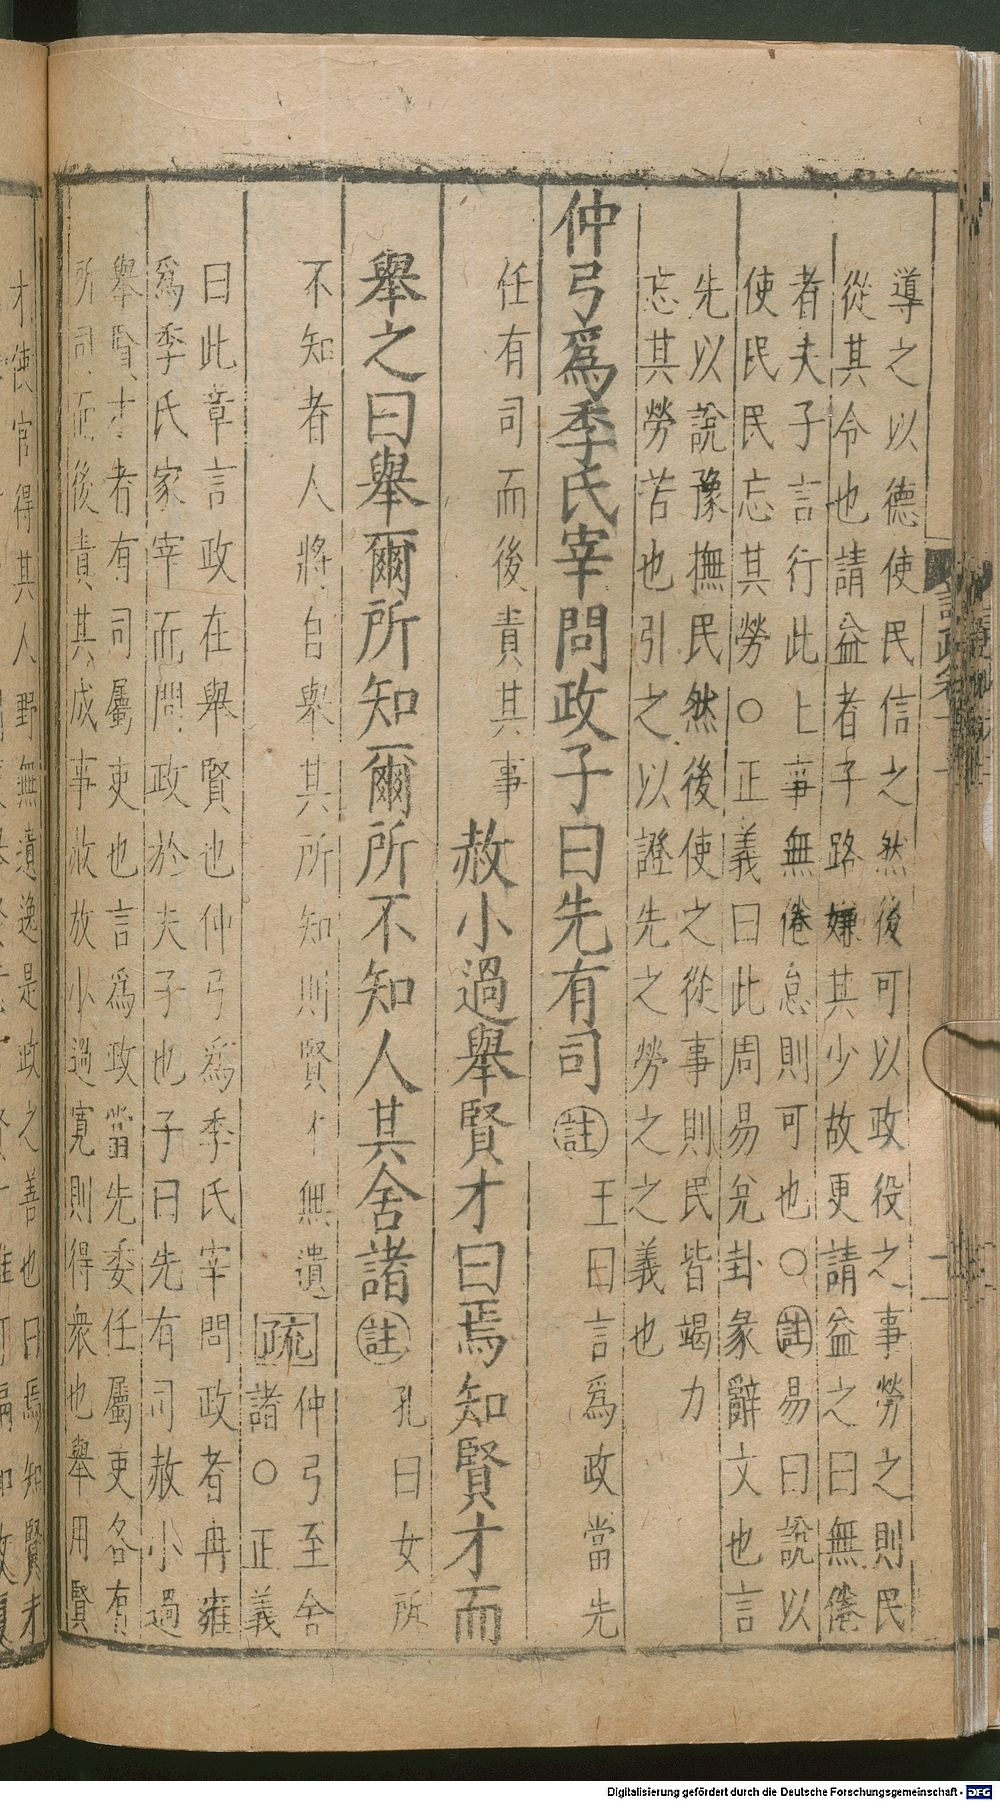 導之以德使民信之然後可以政役之事勞之則民
從其令也請益者子路嫌其少故更請益之曰無倦
者夫子言行此上事無倦怠則可也○註易曰說以
使民民忘其勞○正義曰此周易兌卦彖辭文也言
先以說豫撫民然後使之從事則民皆竭力
忘其勞苦也引之以證先之勞之之義也
仲弓爲季氏宰問政子曰先有司註王曰言爲政當先
任有司而後責其事
赦小過舉賢才曰焉知賢才而
舉之曰舉爾所知爾所不知人其舍諸註孔曰女所
不知者人將自舉其所知則賢才無遺
疏仲弓至舍
諸○正義
曰此章言政在舉賢也仲弓爲季氏宰問政者冉雍
爲季氏家宰而問政於夫子也子曰先有司赦小過
舉賢才者有司屬吏也言爲政當先委任屬吏各有
所司而後責其成事赦放小過寬則得衆也舉用賢
才使官得其人野無遺逸是政之善也曰焉知賢才
Digitalisierung gefördert durch die Deutsche Forschungsgemeinschaft - DFG